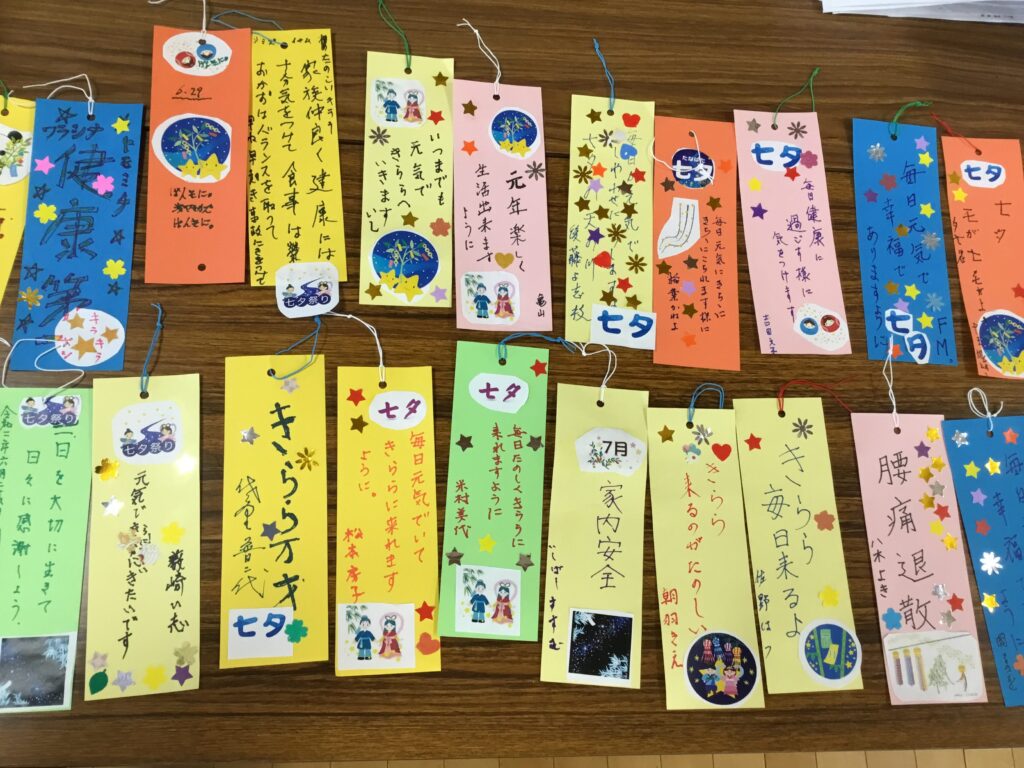 トモコ
ワラシナ
健康第一
キラキラ
6.29
家族仲良く健康には
十分気をつけて食事は栄
おかずはバランスを取って
七夕祭り
いつまでも
元気で
きららへ
いきますし
元年楽しく
生活出来ます
ように
亀山
毎日元気で
後藤よ志枝
七夕
たなばた
毎日元気にきらゝに
きらゝにこられます様に
稲葉かねよ
七夕
毎日健康に
過ごす様に
気をつけます
七夕
毎日元気で
幸福で
ありますように
F M。
七夕
七夕
七夕祭り
一日を大切に生きて
日々に感謝しよう。
七夕祭り
元気できららにいきたいです
きらら万才
七夕
七夕
毎日元気でいて
きららに来れます
ように。
松本房子
七夕
毎日たのしくきらゝに
来れますように
米村美代
7月
家内安全
いしばしすすむ
きらら
来るのがたのしい
朝羽きえ
きらら
毎日来るよ
佐野はつ
腰痛退散
八木よき
毎日
幸福で
ように